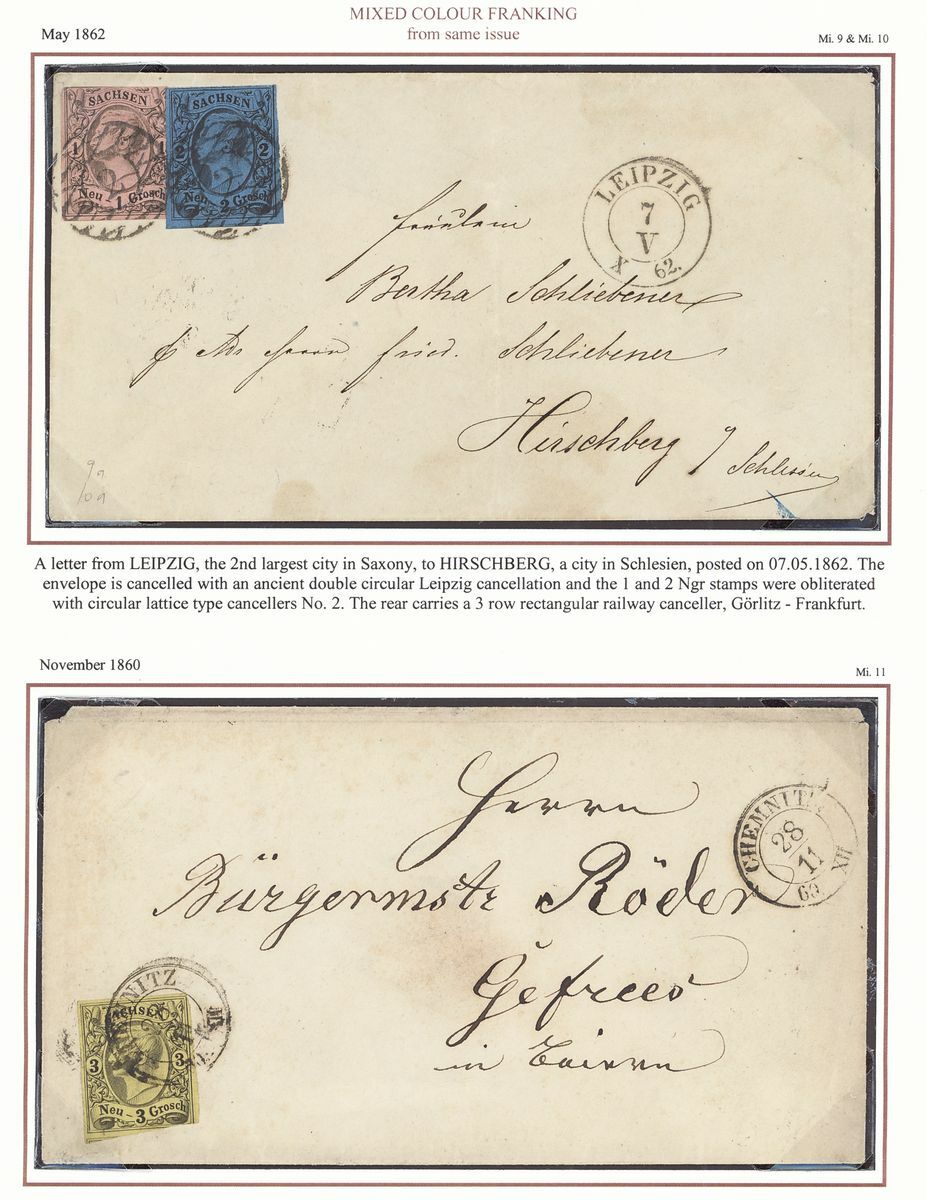 MIXED COLOUR FRANKING
May 1862
from same issue
Mi. 9 & Mi. 10
SACHSEN
1 1
Neu - 1 Grosch
SACHSEN
2 2
Neu - 2 Grosch
LEIPZIG
7
V
X 62.
Fräulein
Bertha Schliebener
Adr Herrn Fried. Schliebener
Hirschberg / Schlesien
9a
10a
A letter from LEIPZIG, the 2nd largest city in Saxony, to HIRSCHBERG, a city in Schlesien, posted on 07.05.1862. The
envelope is cancelled with an ancient double circular Leipzig cancellation and the 1 and 2 Ngr stamps were obliterated
with circular lattice type cancellers No. 2. The rear carries a 3 row rectangular railway canceller, Görlitz - Frankfurt.
November 1860
Mi. 11
Herrn
CHEMNITZ
28
11
60 XII
Bürgermstr Röder
Gefrees
in Baiern
SACHSEN
3 3
Neu - 3 Grosch